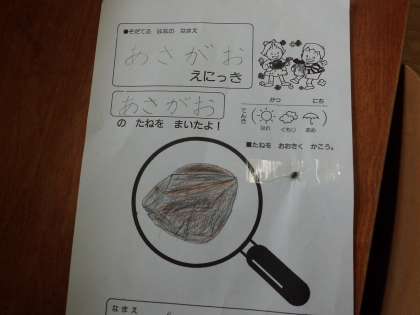 ●そだてる はなの なまえ
あさがお
えにっき
あさがお
の たねを まいたよ！
がつ にち
てんき
はれ くもり あめ
■たねを おおきく かこう。
なまえ